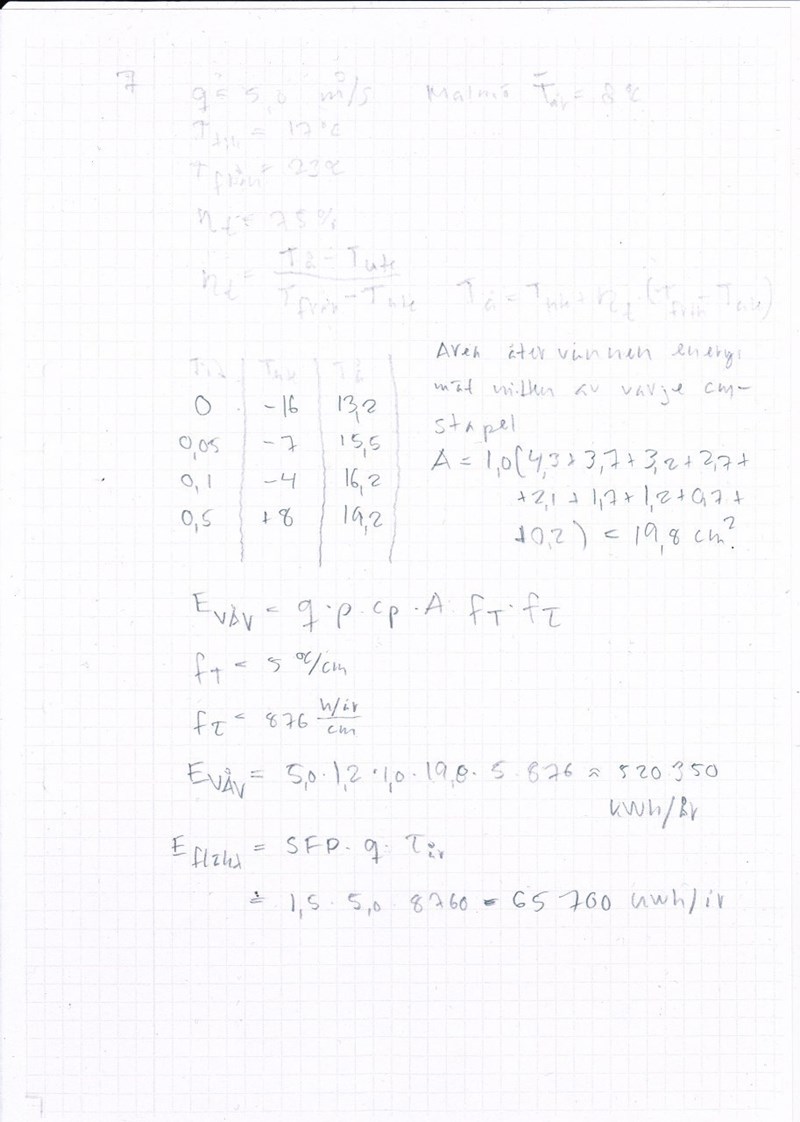 7 q = 5,0 m³/s Malmö T̄år = 8 °C
Ttill = 17 °C
Tfrån = 23 °C
ηt = 75 %
ηt = (Tå - Tute) / (Tfrån - Tute) Tå = Tute + ηt · (Tfrån - Tute)
Tid Tute Tå
0 -16 13,2
0,05 -7 15,5
0,1 -4 16,2
0,5 +8 19,2
Arean återvunnen energi
mät mitten av varje cm-
stapel
A = 1,0(4,3+3,7+3,2+2,7+
+2,1+1,7+1,2+0,7+
+0,2) = 19,8 cm²
EVÅV = q · ρ · cp · A · fT · fτ
fT = 5 °C/cm
fτ = 876 h/år/cm
EVÅV = 5,0 · 1,2 · 1,0 · 19,8 · 5 · 876 ≈ 520 350
kWh/år
Efläkt = SFP · q · τår
= 1,5 · 5,0 · 8760 = 65 700 kWh/år